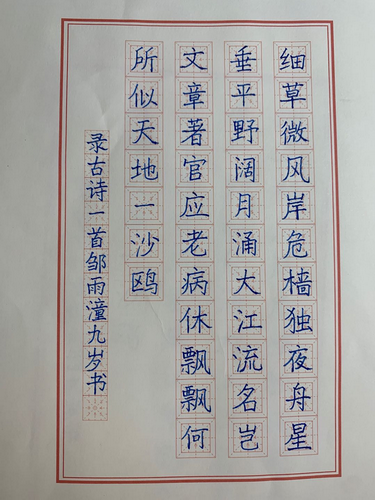 细草微风岸危樯独夜舟星
垂平野阔月涌大江流名岂
文章著官应老病休飘飘何
所似天地一沙鸥
录古诗一首邹雨潼九岁书